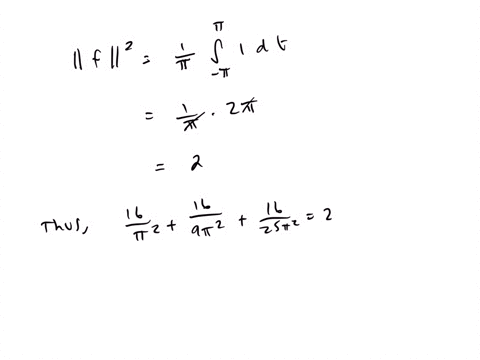 ‖f‖² = 1/π ∫_{-π}^{π} 1 dt
= 1/π · 2π
= 2
Thus, 16/π² + 16/9π² + 16/25π² = 2